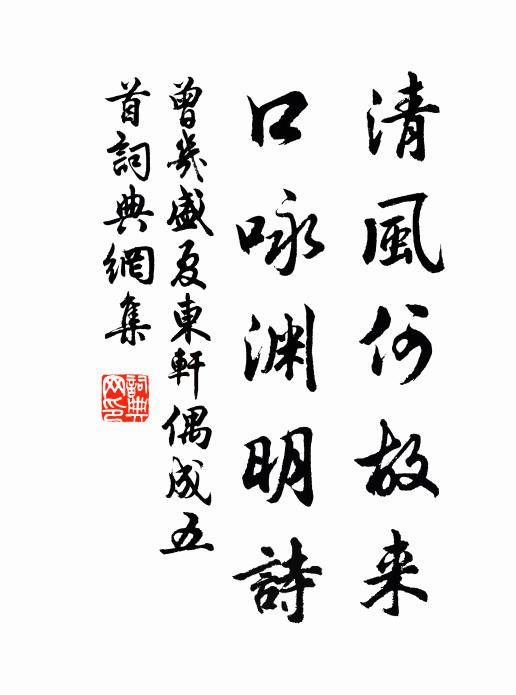 清風何故来
口咏渊明詩
曾幾盛夏東軒偶成五
首詞典網集
詞典
网印